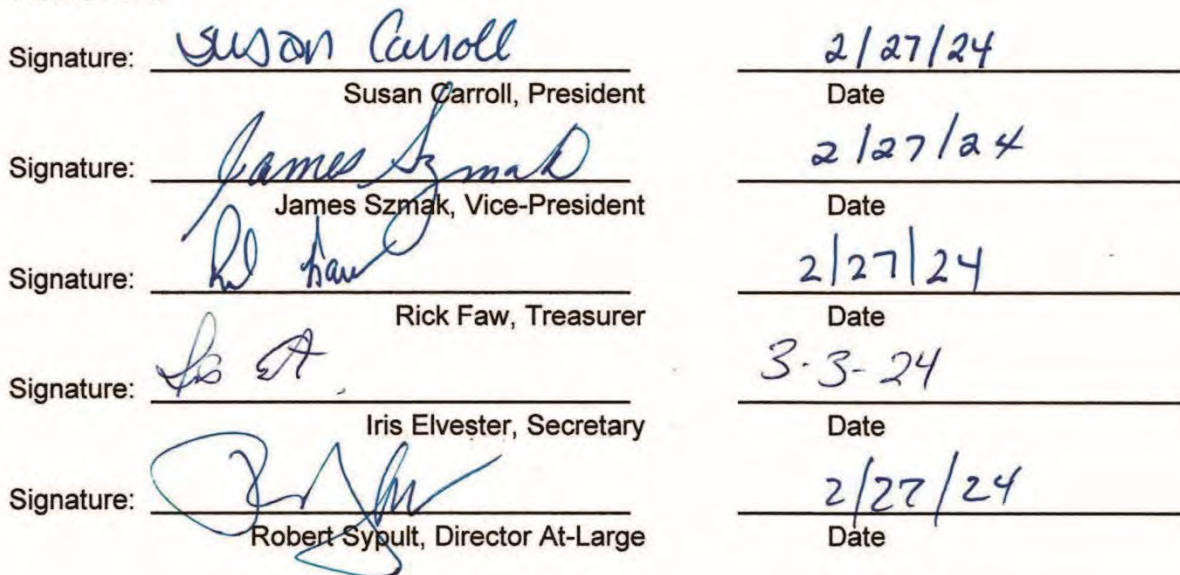 Signature: Susan Carroll 2/27/24
Susan Carroll, President Date
Signature: James Szmak 2/27/24
James Szmak, Vice-President Date
Signature: 2/27/24
Rick Faw, Treasurer Date
Signature: 3-3-24
Iris Elvester, Secretary Date
Signature: 2/27/24
Robert Sypult, Director At-Large Date